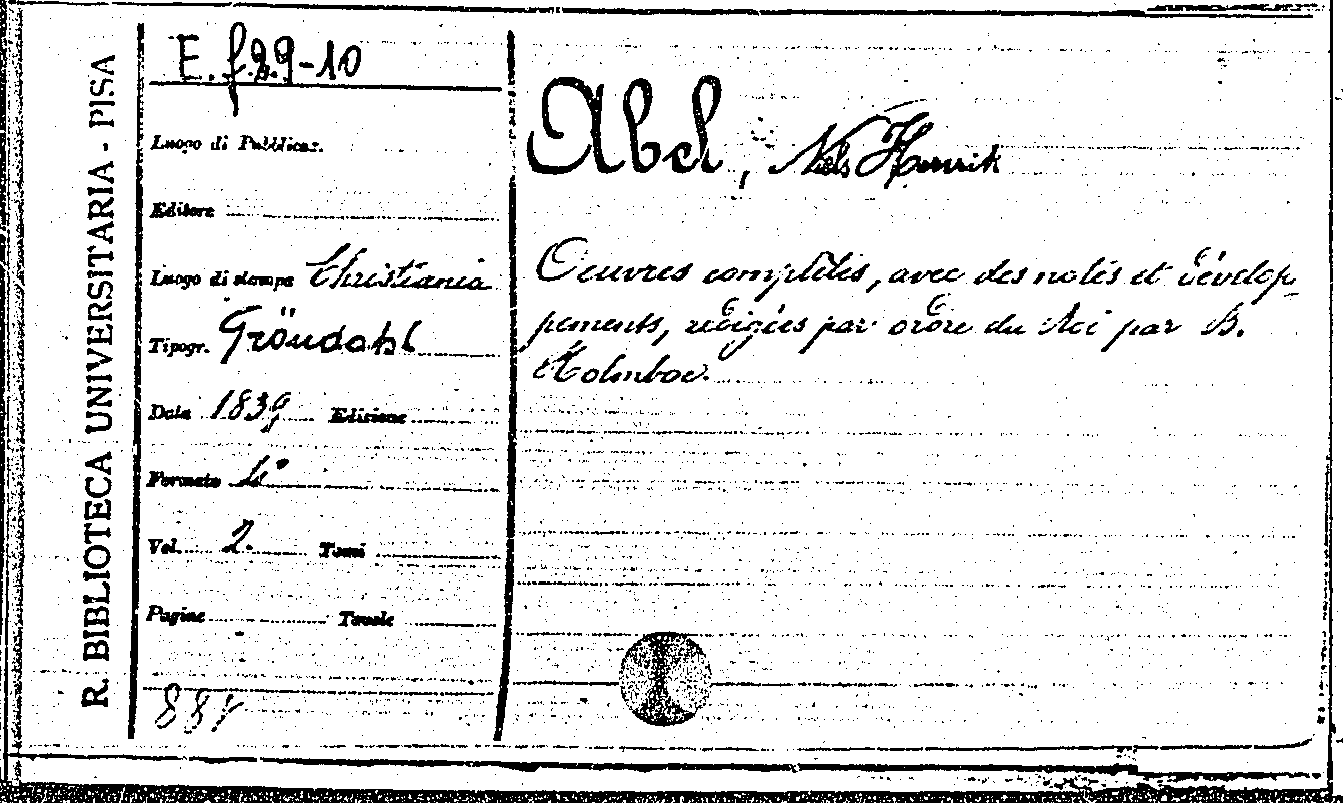 R. BIBLIOTECA UNIVERSITARIA - PISA
E. f.29-10
Luogo di Pubblicaz.
Editore
Luogo di stampa Christiania
Tipogr. Gröndahl
Data 1839 Edizione
Formato 4°
Vol. 2. Tomi
Pagine Tavole
Abel, Niels Henrik
Oeuvres complètes, avec des notes et dévelop-
pements, rédigées par ordre du Roi par B.
Holmboe.